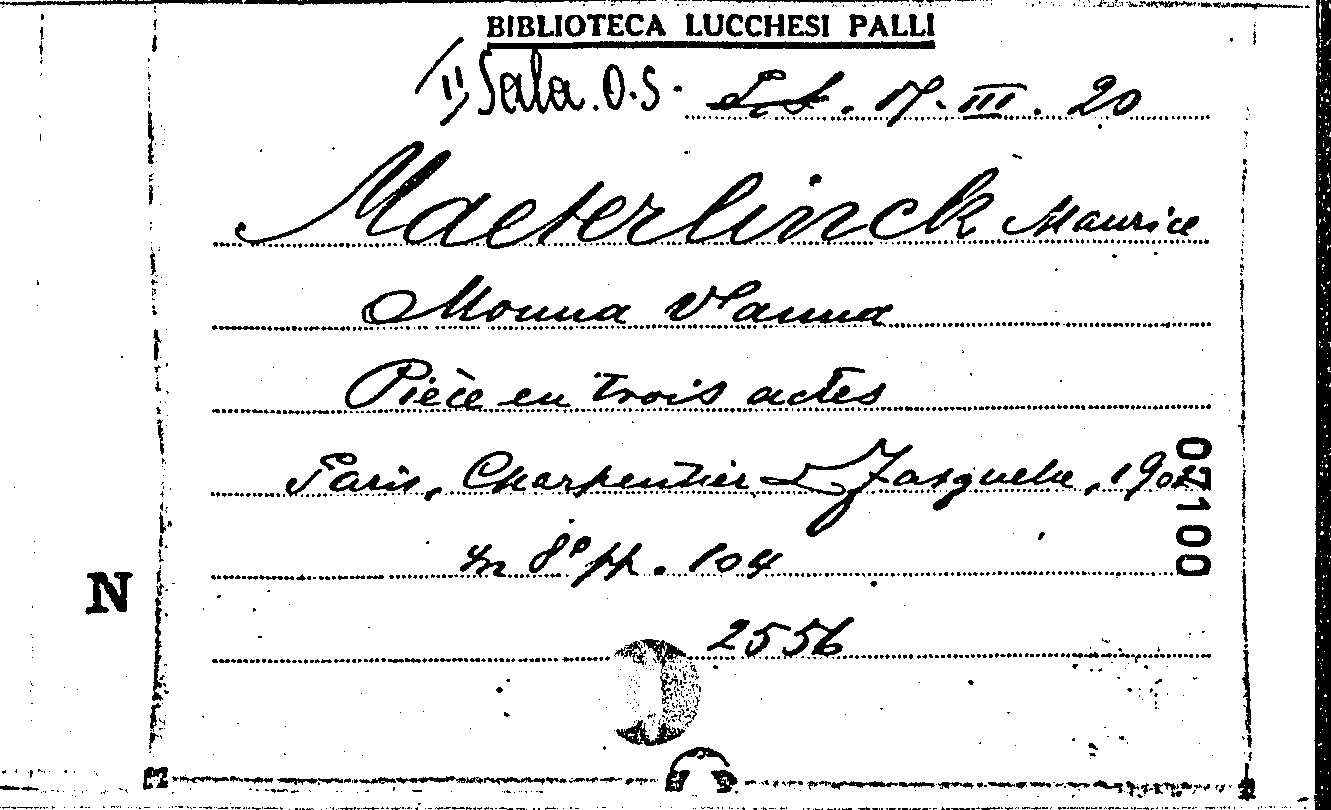 BIBLIOTECA LUCCHESI PALLI
II Sala. O.S. L.S. 17. III. 20
Maeterlinck Maurice
Monna Vanna
Pièce en trois actes
Paris, Charpentier & Fasquelle, 1902
07100
in 8° pp. 104
N
2556